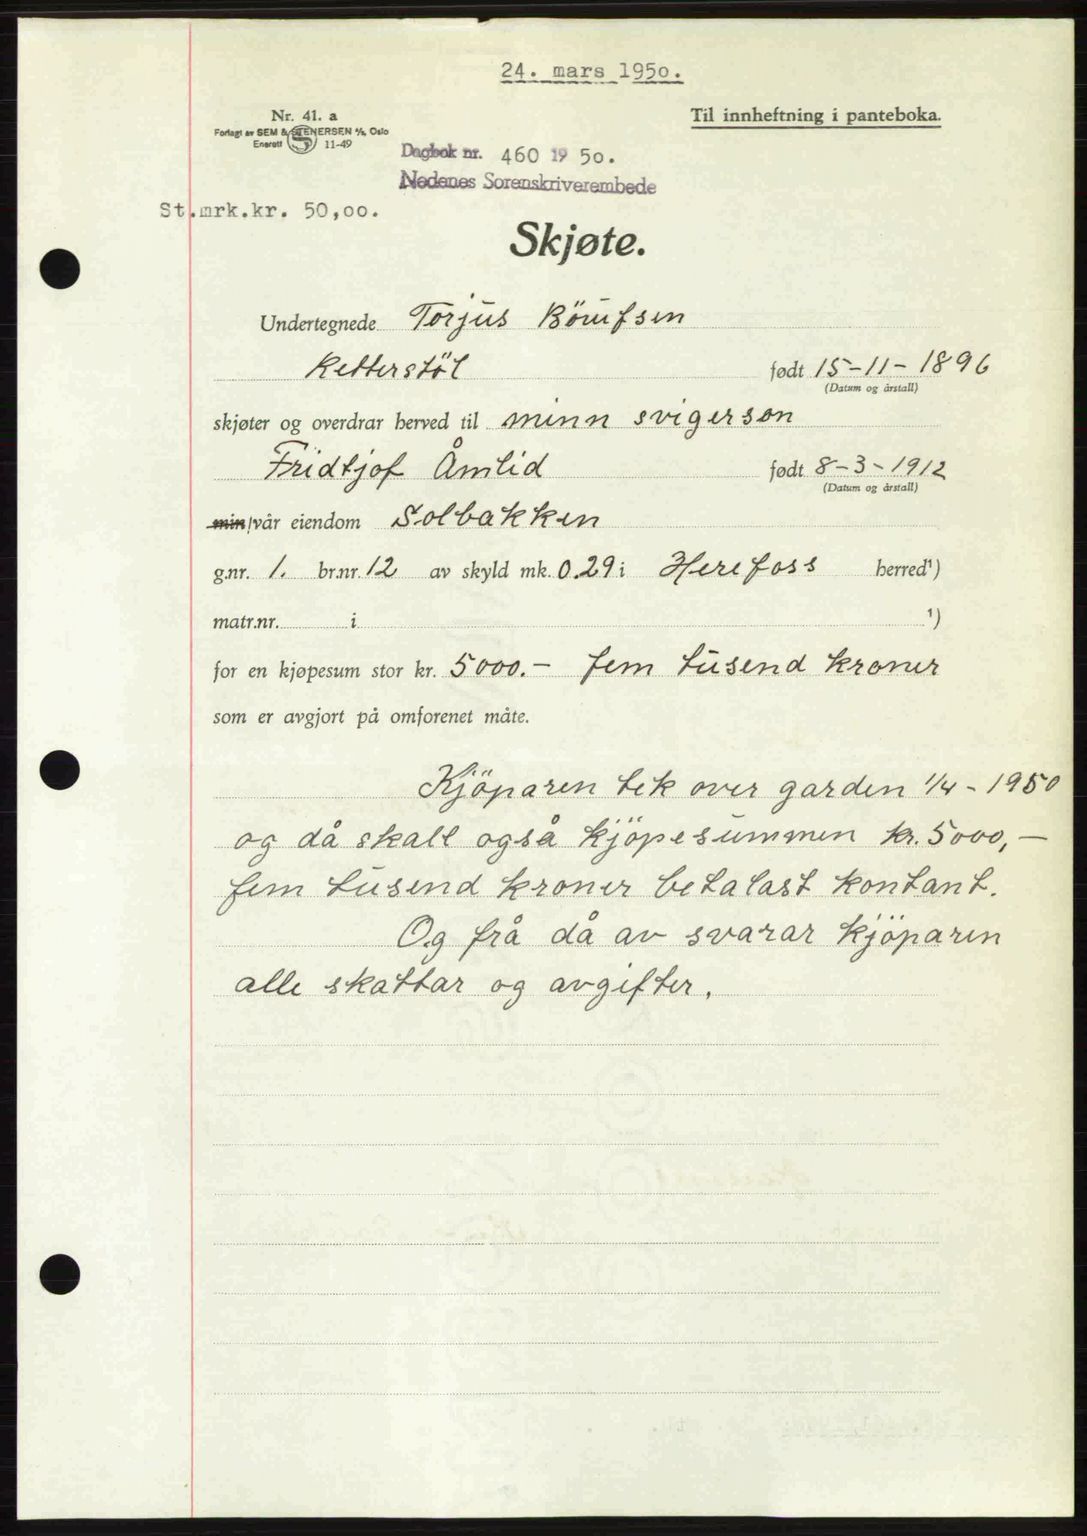 24. mars 1950.
Nr. 41. a
Til innheftning i panteboka.
Forlagt av SEM & STENERSEN A/S, Oslo
Enerett 11-49
Dagbok nr. 460 19 50.
Nedenes Sorenskriverembede
St.mrk.kr. 50,00.
Skjøte.
Undertegnede Torjus
Retterstöl født 15-11-1896
(Datum og årstall)
skjøter og overdrar herved til minn svigerson
Fridtjof Åmlid født 8-3-1912
(Datum og årstall)
min/vår eiendom Solbakken
g.nr. 1. br.nr. 12 av skyld mk. 0.29 i Herefoss herred¹)
matr.nr. i ¹)
for en kjøpesum stor kr. 5000.- fem tusend kroner
som er avgjort på omforenet måte.
Kjöparen tek over garden 1/4-1950
og då skall også kjöpesummen kr. 5000,-
fem tusend kroner betalast kontant.
Og frå då av svarar kjöparen
alle skattar og avgifter.